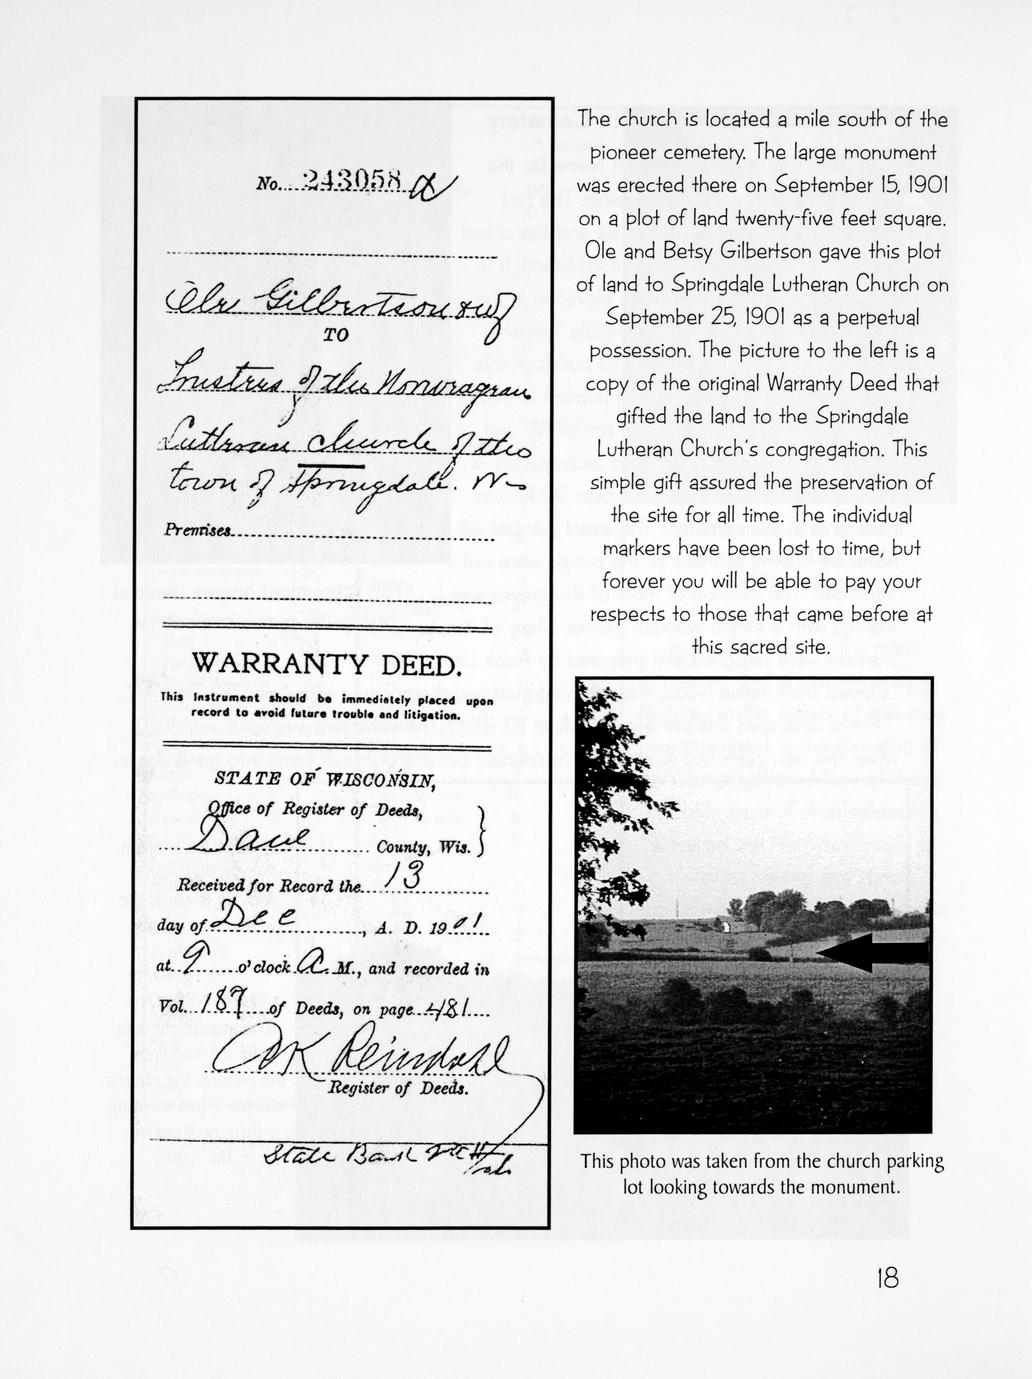 No. 243058 a
Ole Gilbertson & wf
TO
Trustees of the Norwegian
Lutheran Church of the
town of Springdale. Wis
Premises
WARRANTY DEED.
This Instrument should be immediately placed upon
record to avoid future trouble and litigation.
STATE OF WISCONSIN,
Office of Register of Deeds,
Dane County, Wis.
Received for Record the 13
day of Dec, A. D. 1901
at 9 o'clock A. M., and recorded in
Vol. 187 of Deeds, on page 481
Reindahl
Register of Deeds.
State Bank Mt H
The church is located a mile south of the
pioneer cemetery. The large monument
was erected there on September 15, 1901
on a plot of land twenty-five feet square.
Ole and Betsy Gilbertson gave this plot
of land to Springdale Lutheran Church on
September 25, 1901 as a perpetual
possession. The picture to the left is a
copy of the original Warranty Deed that
gifted the land to the Springdale
Lutheran Church's congregation. This
simple gift assured the preservation of
the site for all time. The individual
markers have been lost to time, but
forever you will be able to pay your
respects to those that came before at
this sacred site.
This photo was taken from the church parking
lot looking towards the monument.
18